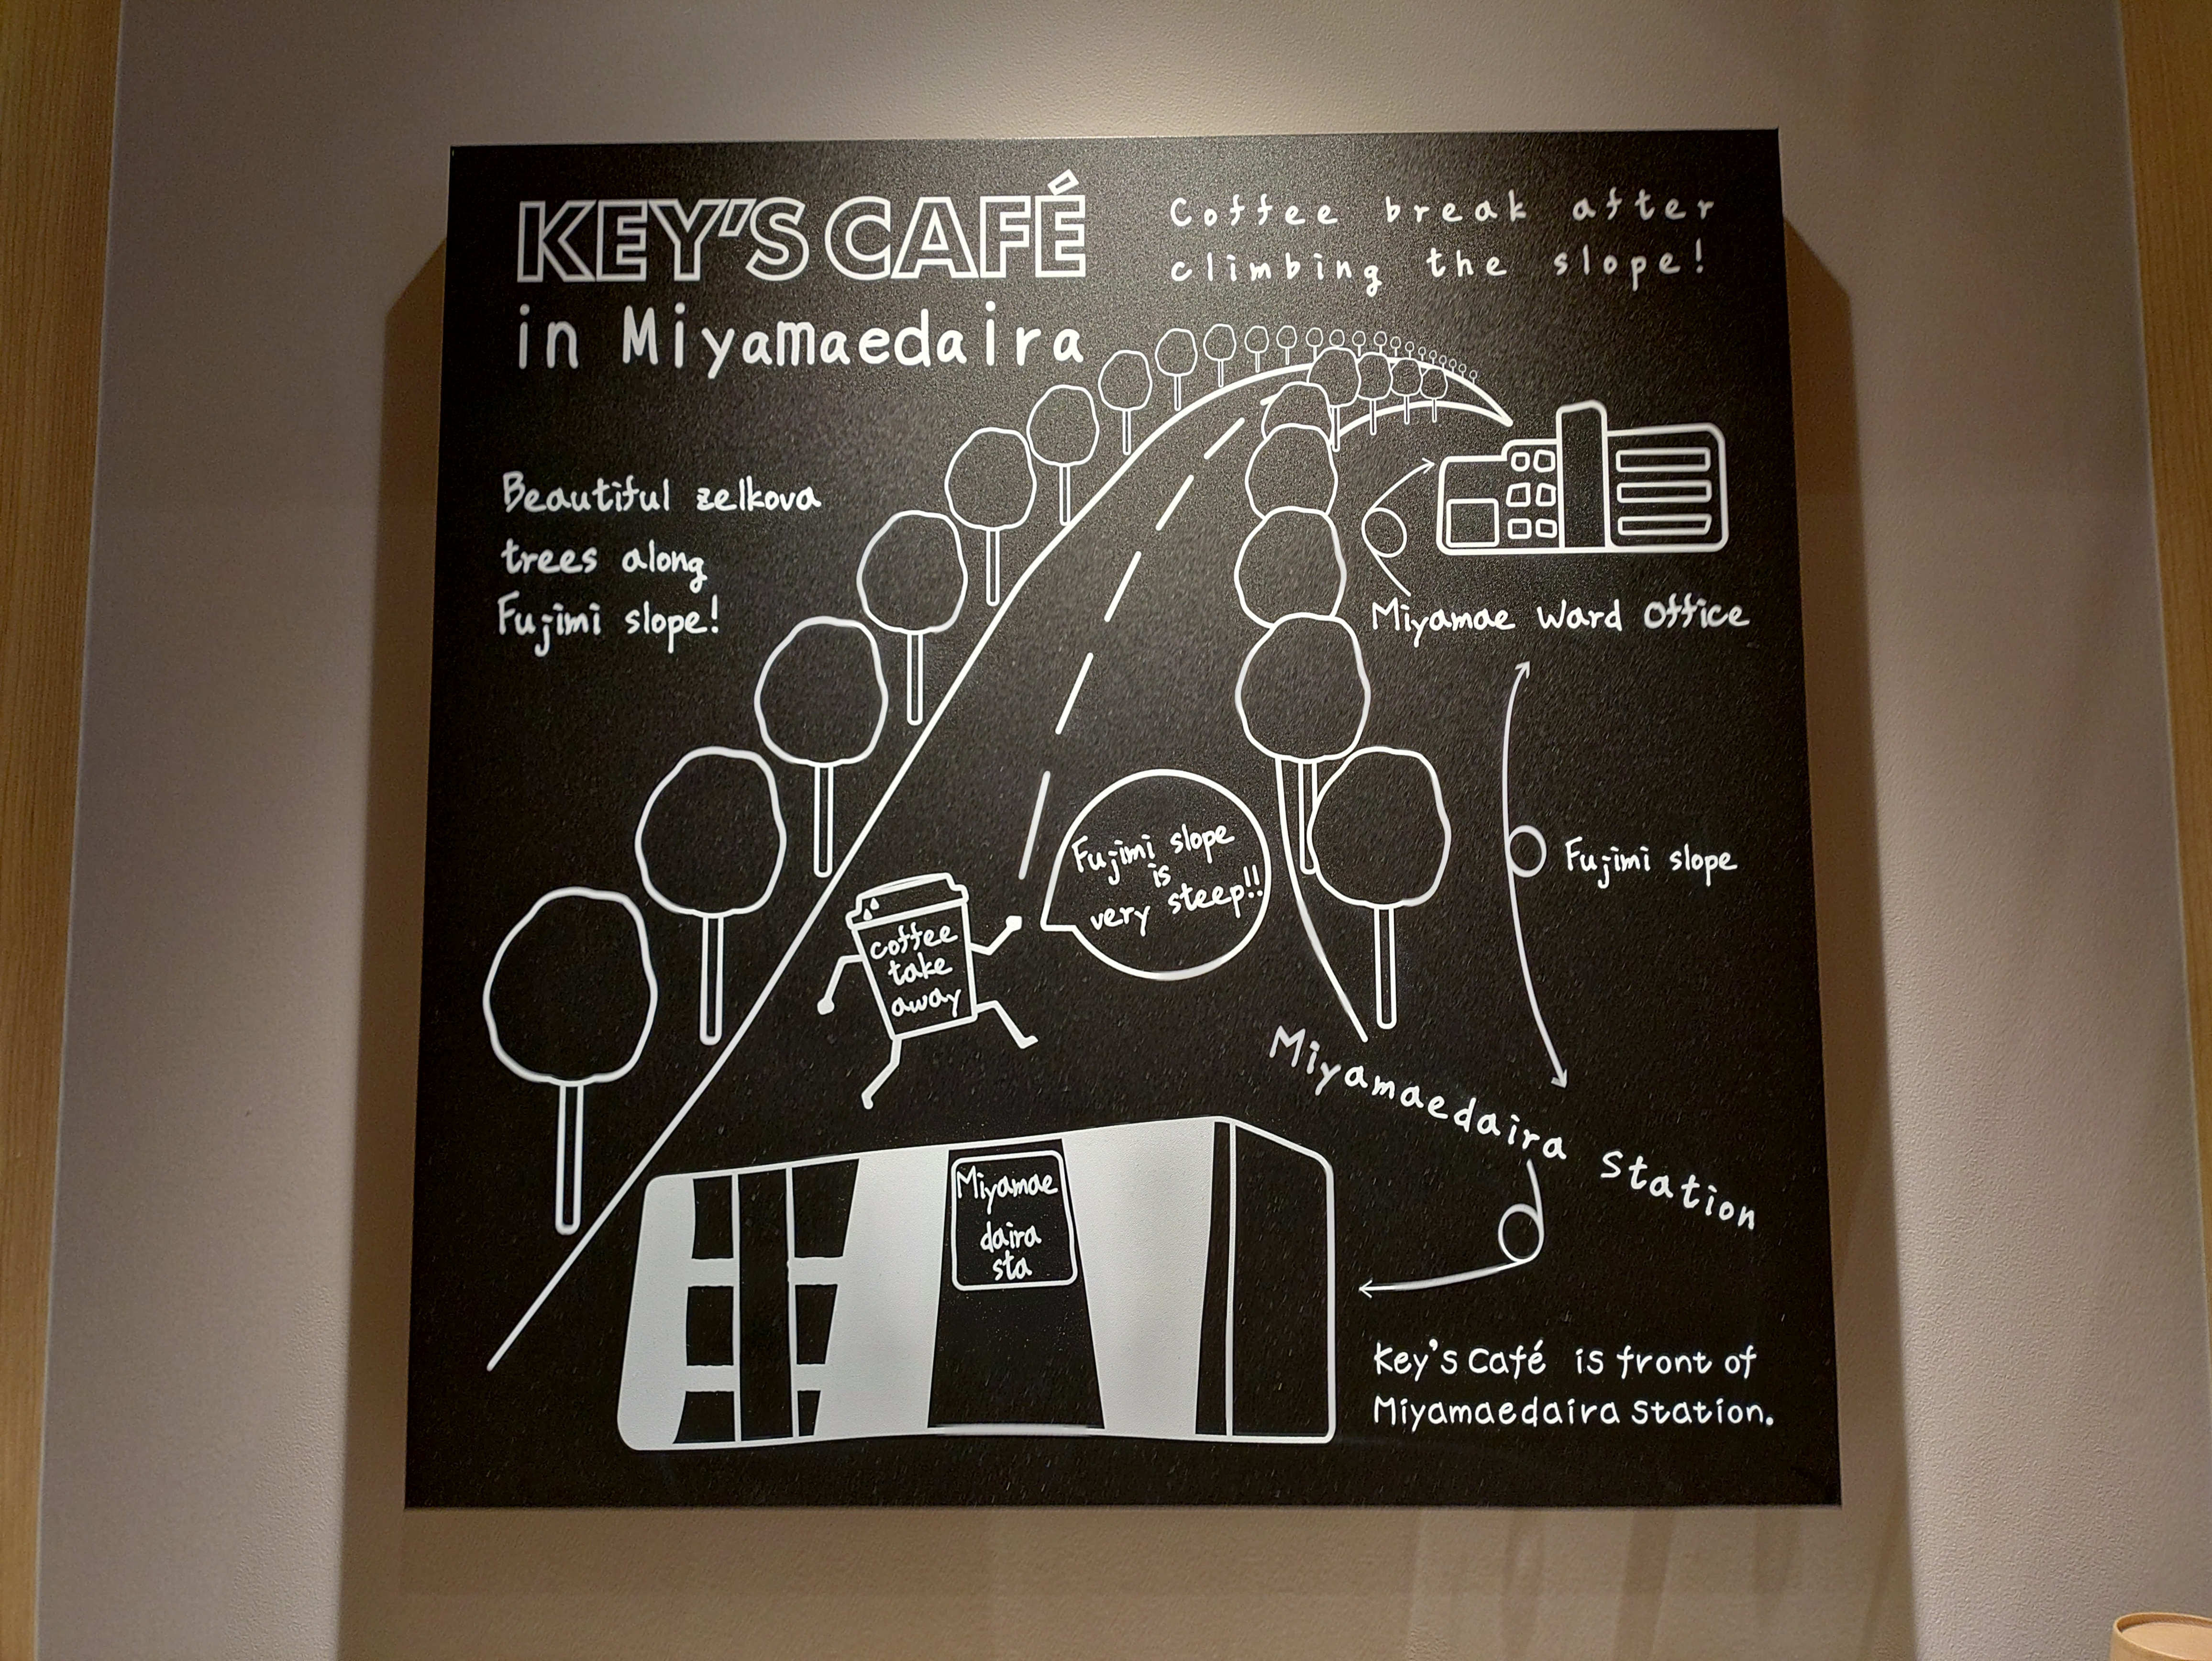 KEY'S CAFÉ
in Miyamaedaira
Coffee break after
climbing the slope!
Beautiful zelkova
trees along
Fujimi slope!
Miyamae Ward Office
Fujimi slope
is
very steep!!
Fujimi slope
coffee
take
away
Miyamaedaira Station
Miyamae
daira
sta
Key's Café is front of
Miyamaedaira Station.